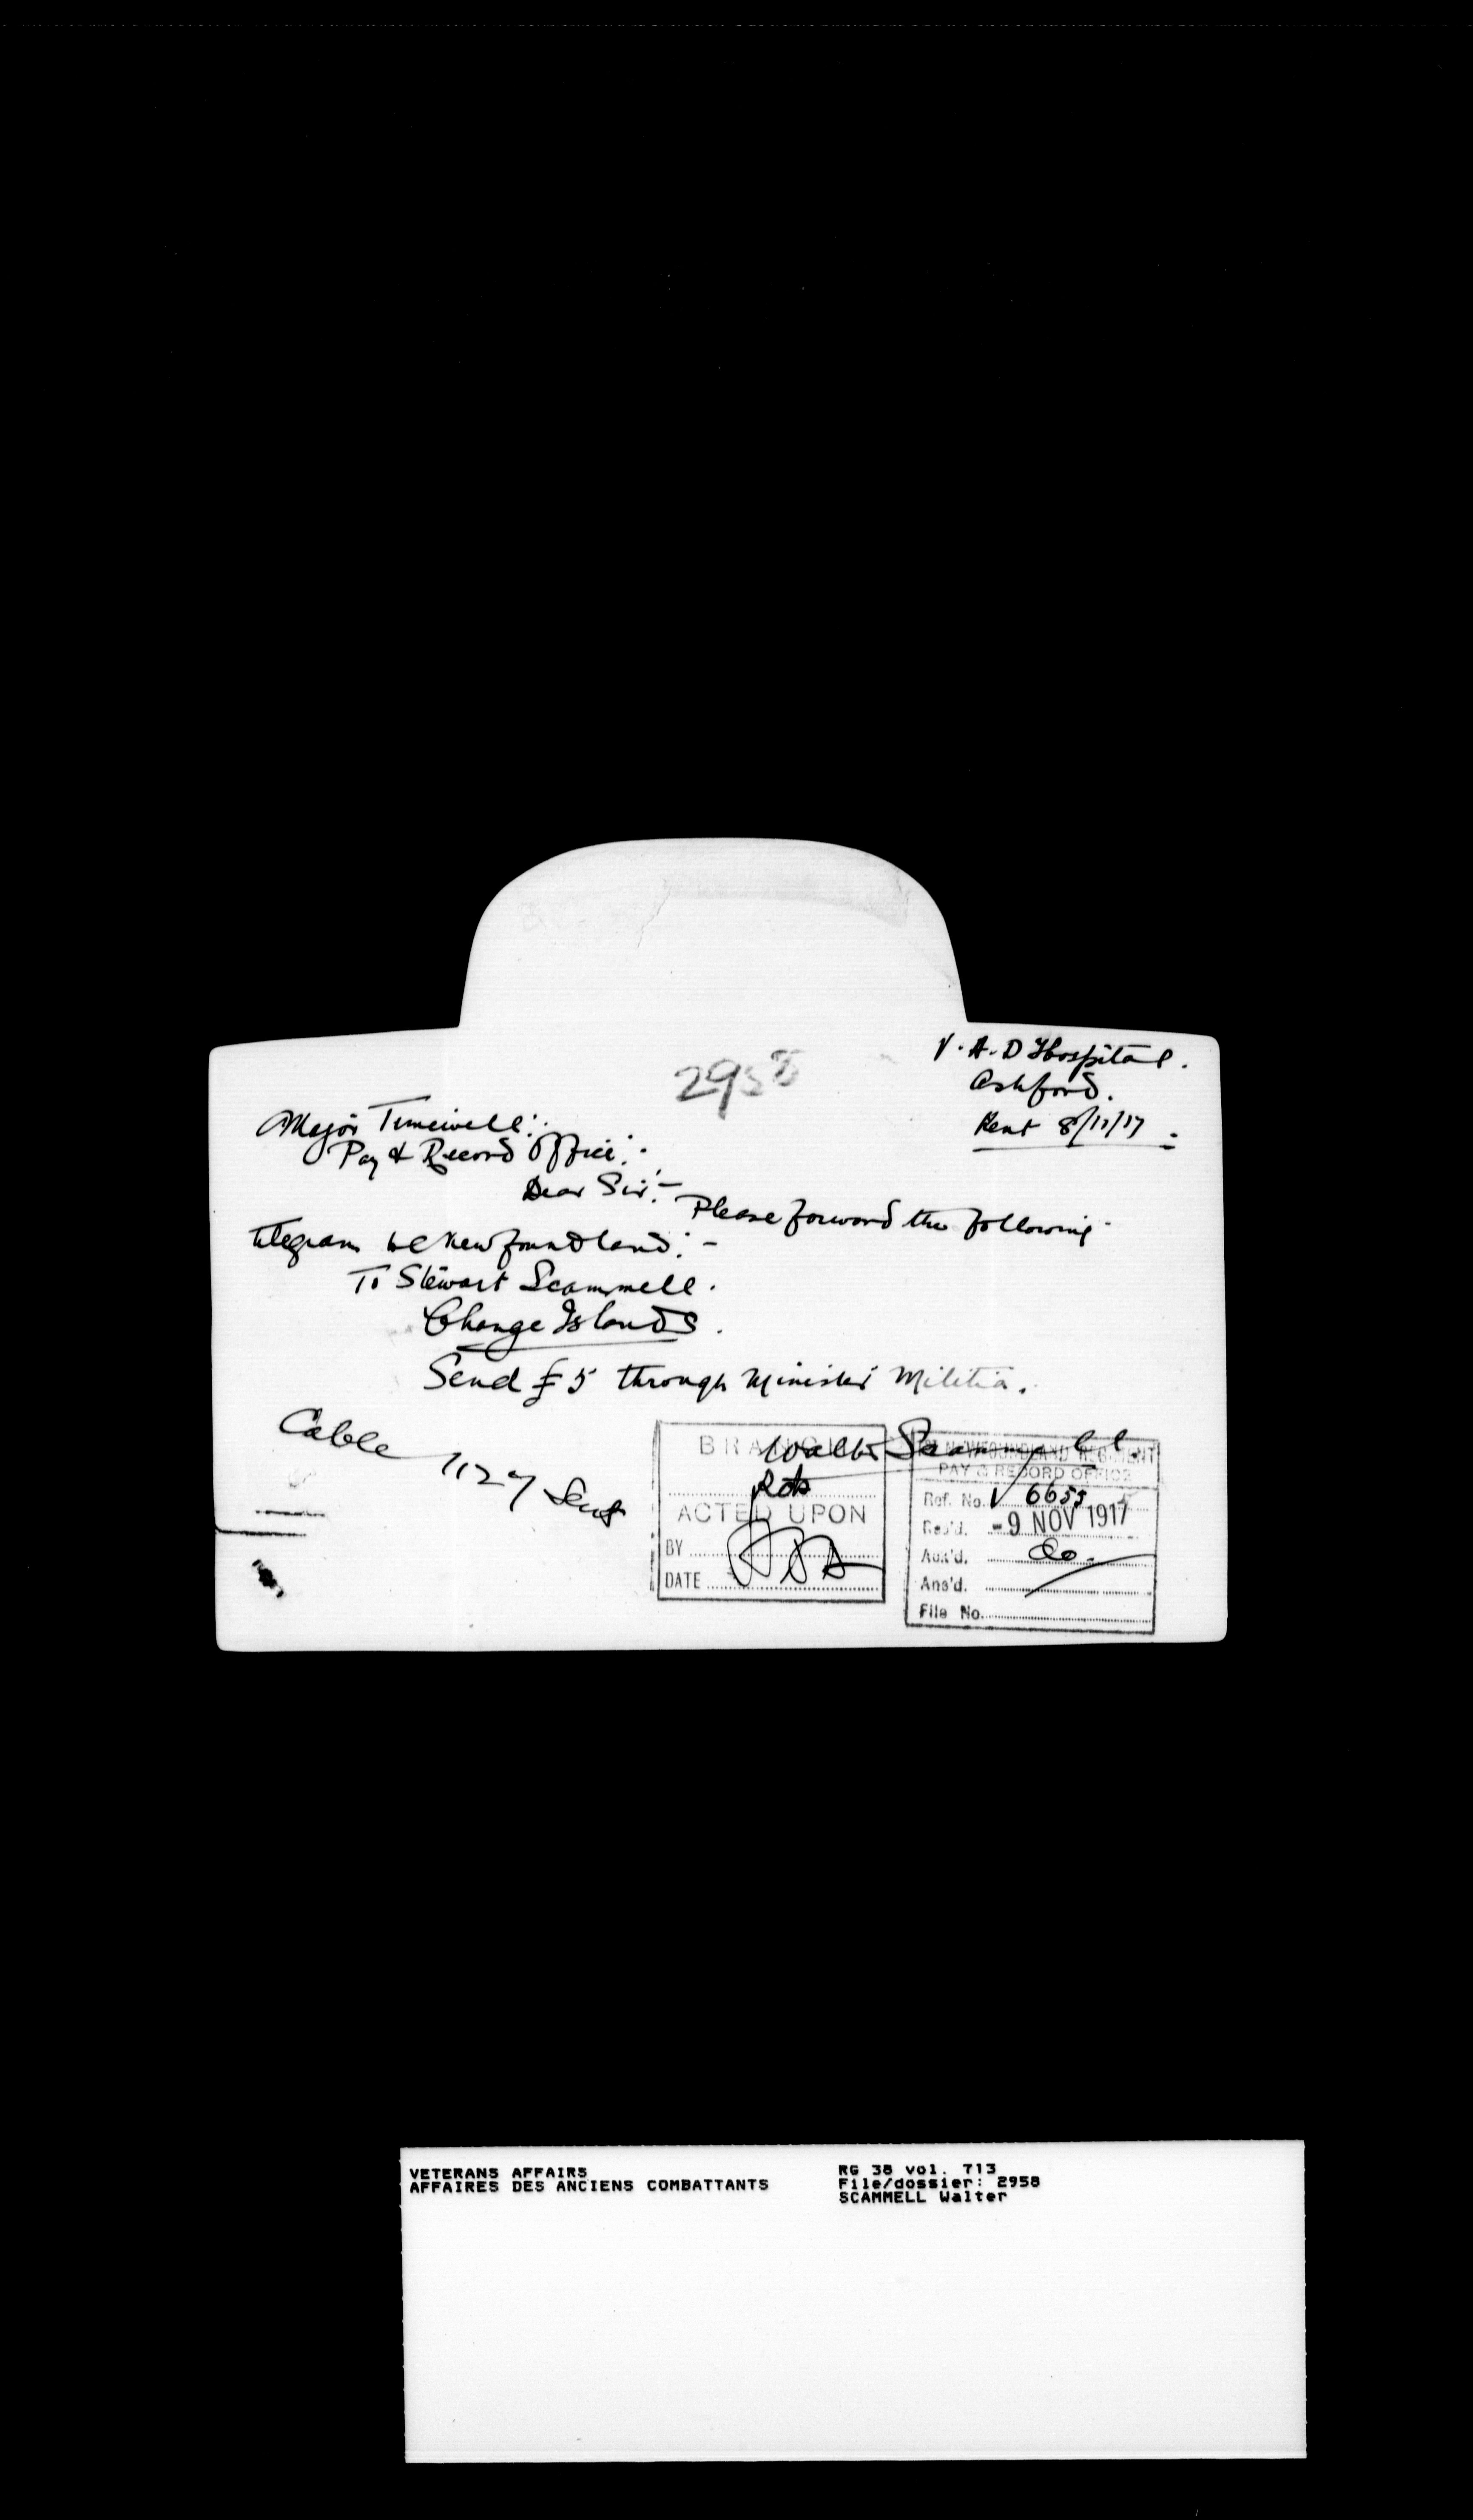 2958
V.A.D Hospital.
Ashford.
Kent 8/11/17.
Major Timewell:
Pay & Record Office:-
Dear Sir:-
Please forward the following
telegram to Newfoundland:-
To Stewart Scammell.
Change Islands.
Send £5 through Minister Militia.
Walter Scammell.
Cable 1127 Sent
BRANCH
ACTED UPON
BY
DATE
1ST NEWFOUNDLAND REGIMENT
PAY & RECORD OFFICE
Ref. No. 6655
Rec'd. -9 NOV 1917
Ack'd.
Ans'd.
File No.
VETERANS AFFAIRS
AFFAIRES DES ANCIENS COMBATTANTS
RG 38 vol. 713
File/dossier: 2958
SCAMMELL Walter